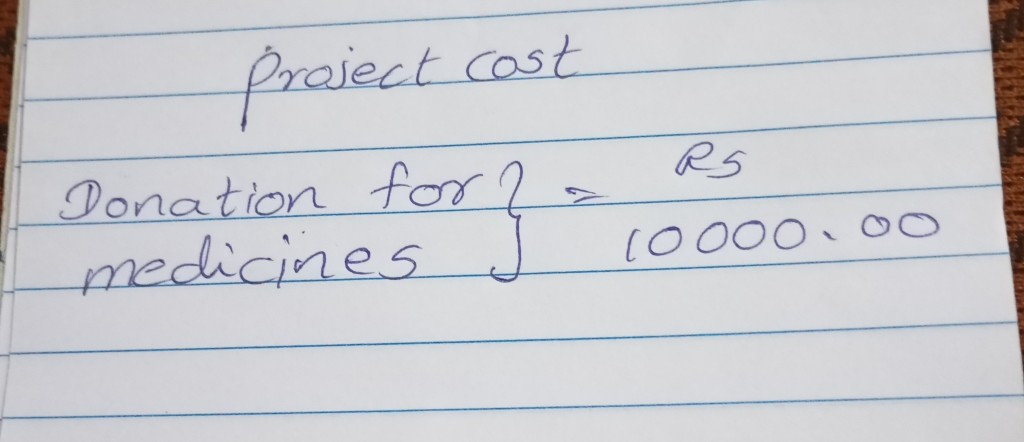 Project cost
Rs
Donation for } =
medicines 10000.00